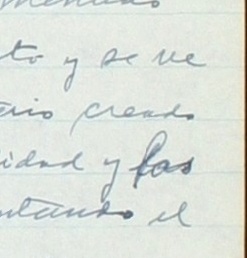 to y se ve
ario creado
idad y las
ntando el